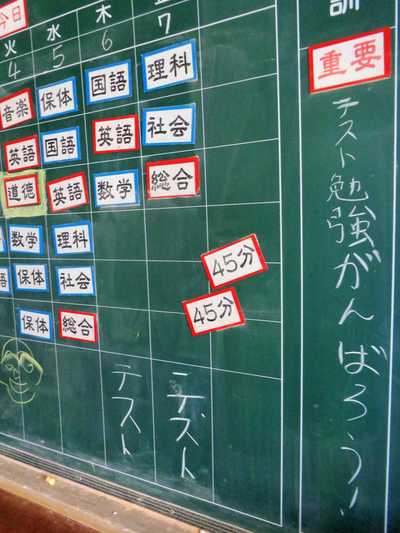 今日
火 水 木
4 5 6 7
音楽 保体 国語 理科
英語 国語 英語 社会
道徳 英語 数学 総合
数学 理科
語 保体 社会
保体 総合
45分
45分
テスト
テスト
訓
重要
テスト勉強がんばろう!